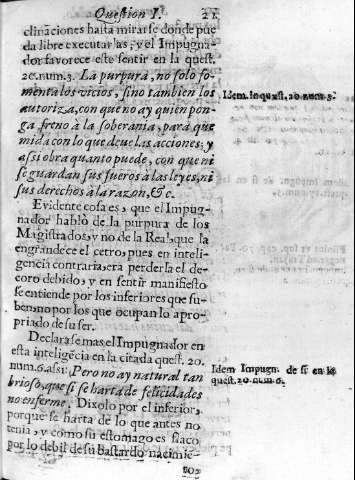 Question I. 21
clinaciones hasta mirarse donde pue
da libre executarlas; y el Impugna-
dor favorece este sentir en la quest.
20. num. 3. La purpura, no solo fo-
menta los vicios, sino tambien los
autoriza, con que no ay quien pon-
ga freno à la soberania, para que
mida con lo que deue las acciones; y
assi obra quanto puede, con que ni
se guardan sus fueros à las leyes, ni
sus derechos à la razon, &c.
Idem. in quæst. 20. num. 3.
Evidente cosa es, que el Impug-
nador hablò de la purpura de los
Magistrados, y no de la Real, que la
engrandece el cetro, pues en inteli-
gencia contraria, era perderla el de-
coro debido; y en sentir manifiesto
se entiende por los inferiores que su-
ben, no por los que ocupan lo apro-
priado de su ser.
Declarase mas el Impugnador en
esta inteligēcia en la citada quest. 20.
num. 6. assi: Pero no ay natural tan
brioso, que si se harta de felicidades
no enferme. Dixolo por el inferior,
porque se harta de lo que antes no
tenia, y como su estomago es flaco
por lo debil de su bastardo nacimiē-
Idem Impugn. de si en la
quest. 20. num. 6.